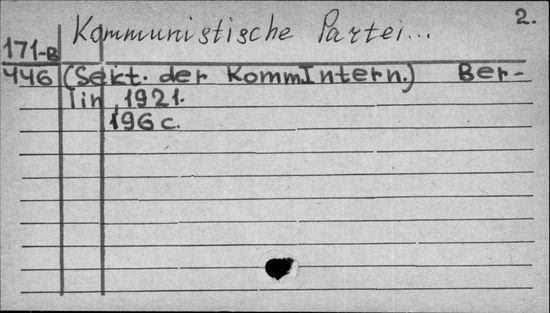 Kommunistische Partei... 2.
171-B
446 (Sekt. der KommIntern.) Ber-
lin, 1921.
196 c.